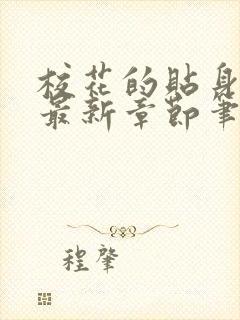 校花的贴身
最新章节笔
程肇